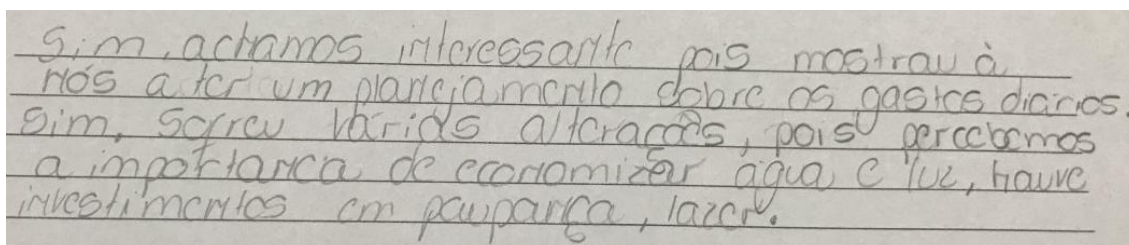 Sim, achamos interessante pois mostrou à
nós a ter um planejamento sobre os gastos diários.
Sim, sofreu várias alterações, pois percebemos
a importanca de economizar água e luz, houve
investimentos em poupança, lazer.